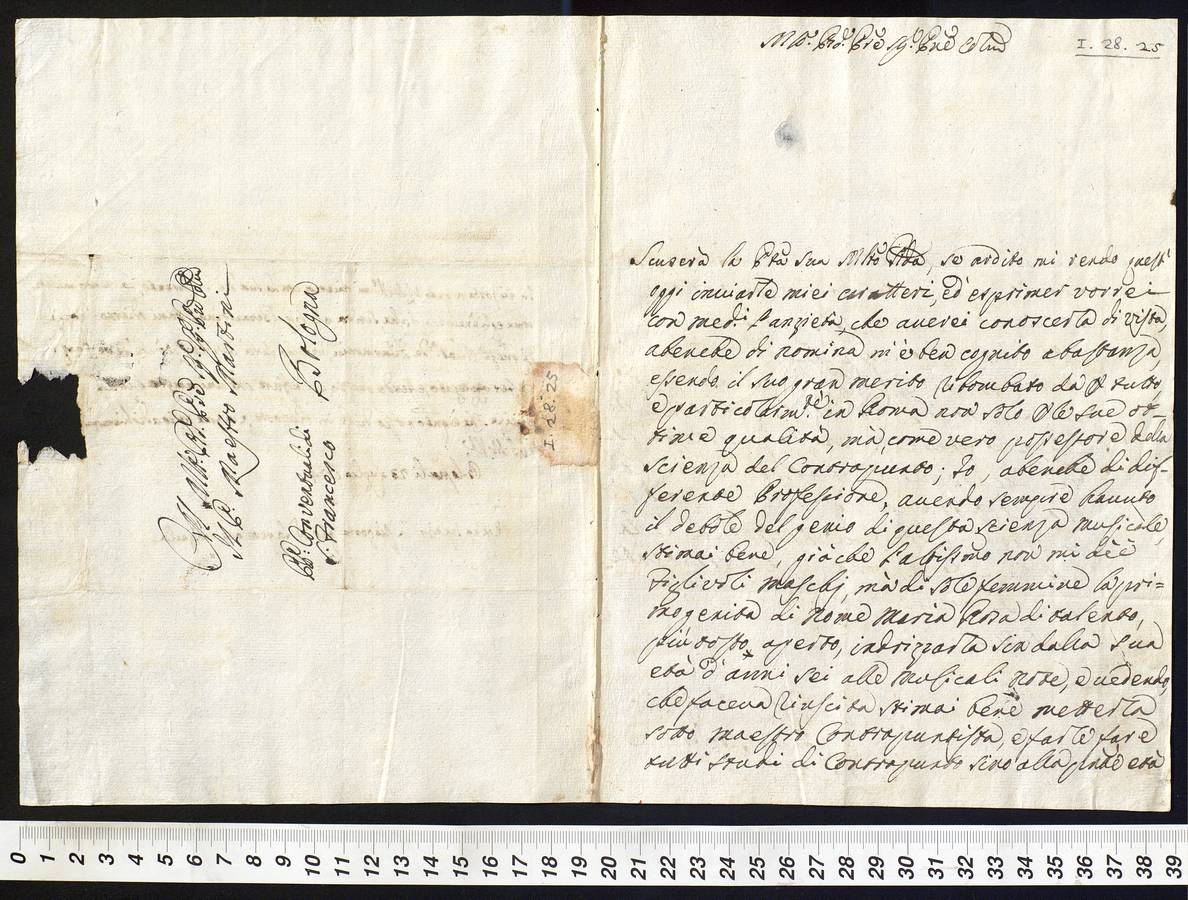 Al Molto Rdo Pre Sig. Pre
Il P. Maestro Martini
Pri Conventuali Bologna
S. Francesco
I. 28. 25
Mto. Rdo. Pre Sig. Pne Colmo
I. 28. 25
Scuserà la Ptà Sua Mlto, se ardito mi rendo quest'
oggi inviarle miei caratteri, ed esprimer vorrei
con med.i l'anzietà, che averei conoscerla di vista,
abenche di nomina m'è ben cognito abastanza,
essendo il suo gran merito ribombato da P tutto,
e particolarm.te in Roma non solo P le sue ot=
time qualità, mà, come vero possessore della
scienza del Contrapunto; Io, abenche di dif=
ferente Professione, avendo sempre hauuto
il debole del genio di questa scienza musicale,
stimai bene, giàche l'altissimo non mi diè
figlivoli maschj, mà di sole femmine la pri=
mogenita di Nome Maria Rosa di talento,
più tosto aperto, indrizzarla sin dalla sua
età d'anni sei alle musicali note, e vedendo,
che faceva riuscita stimai bene metterla
sotto maestro Contrapuntista, e farle fare
tutti studi di Contrapunto sino alla età